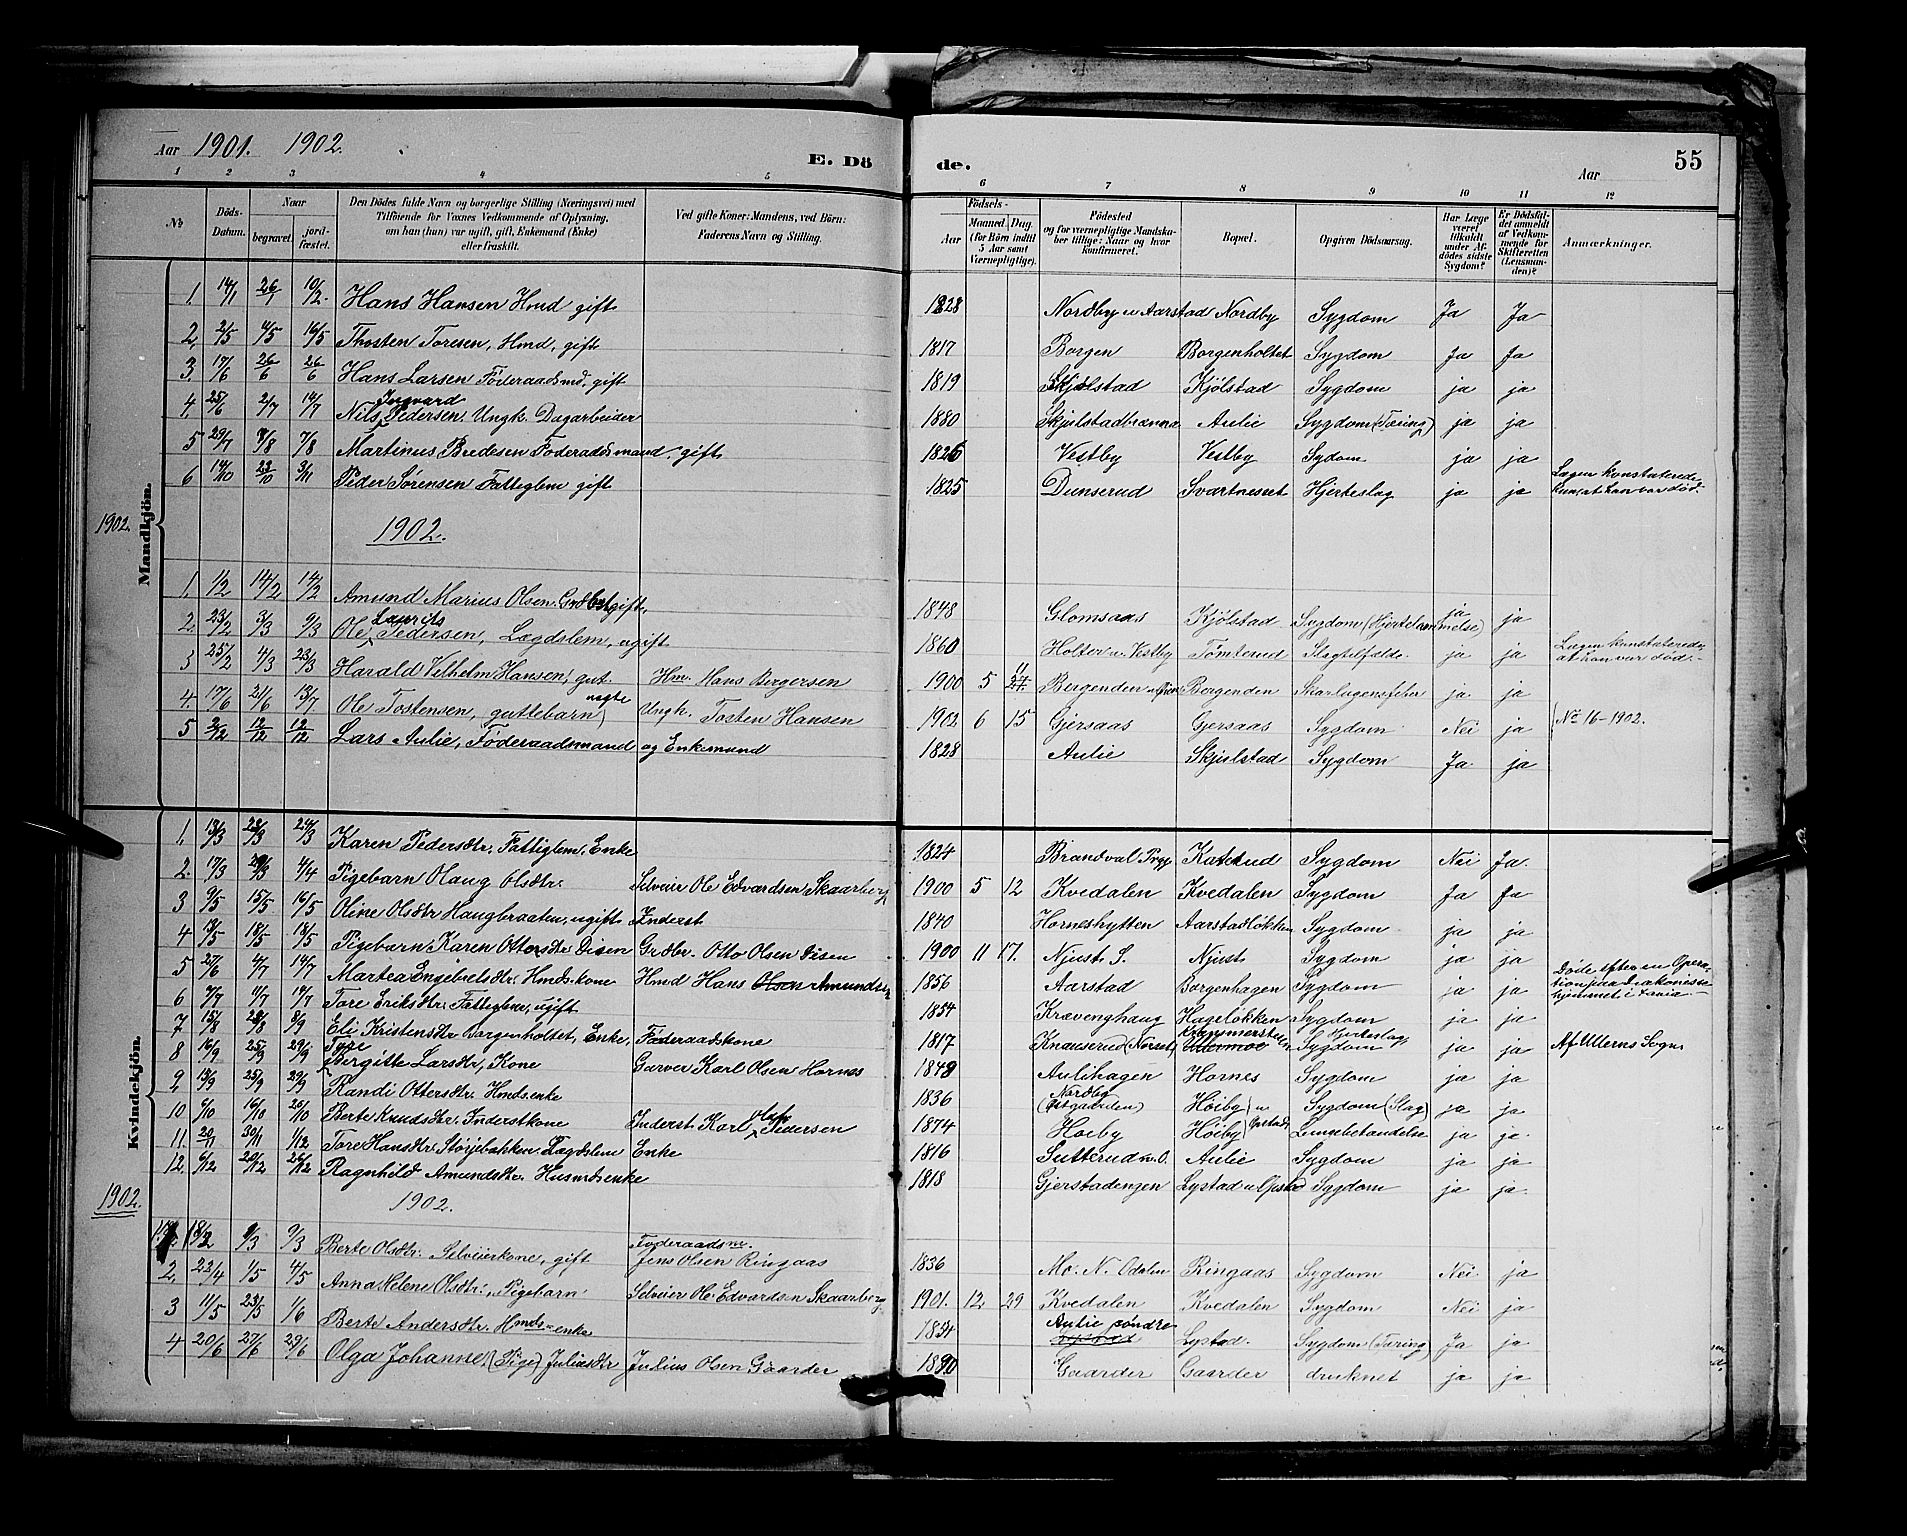 Aar 1901. 1902.
E. Dö de.
Aar
55
1 2 3 4 5 6 7 8 9 10 11 12
No
Döds-Datum.
Naar
begravet.
jordfæstet.
Den Dödes fulde Navn og borgerlige Stilling (Næringsvei) med
Tilföiende for Voxnes Vedkommende af Oplysning,
om han (hun) var ugift, gift, Enkemand (Enke)
eller fraskilt.
Ved gifte Koner: Mandens, ved Börn:
Faderens Navn og Stilling.
Födsels-
Aar
Maaned Dag.
(for Börn indtil
5 Aar samt
Værnepligtige).
Födested
og for værnepligtige Mandskaber tillige: Naar og hvor
konfirmeret.
Bopæl.
Opgiven Dödsaarsag.
Har Læge
været
tilkaldt
under Afdödes sidste
Sygdom?
Er Dödsfaldet anmeldt
af Vedkommende for
Skifteretten
(Lensmanden)?
Anmærkninger.
Mandkjön.
1. 14/1 26/1 10/2. Hans Hansen Hmd gift 1828 Nordby u Aarstad Nordby Sygdom Ja Ja
2. 2/5 4/5 16/5 Thosten Toresen, Hmd, gift 1817 Borgen Borgenholtet Sygdom Ja Ja
3. 17/6 26/6 26/6 Hans Larsen Föderaadsmd. gift 1819 Skjölstad Kjölstad Sygdom ja ja
4 25/6 2/7 14/7 Nils Ingvard Pedersen Ungk. Dagarbeider 1880 Skjulstadbrænna Aulie Sygdom (Tæring) ja ja
5 29/7 7/8 7/8 Martinus Bredesen Föderaadsmand, gift 1826 Vestby Vestby Sydom ja ja
6 14/10 22/10 3/11 Peder Sörensen Fattiglem gift 1825 Dunserud Svartnesset Hjerteslag ja ja Lægen konstaterede kun, at han var död.
1902.
1902.
1. 1/2 14/2 14/2 Amund Marius Olsen Grdbr. gift, 1848 Glomsaas Kjölstad Sygdom (Hjertelammelse) ja ja
2. 23/2 3/3 9/3 Ole Laurits Pedersen, Lægdslem, ugift 1860 Holter u. Vestby Tömterud Slagtilfælde. ja ja Lægen konstaterede at han var död.
3 25/2 4/3 23/3 Harald Vilhelm Hansen, gut Hm. Hans Bergersen 1900 5 11 Bergenden Bergenden Skarlagensfeber ja ja
4. 17/6 21/6 13/7 Ole Tostensen, guttebarn, uegte Ungk. Tosten Hansen 1902 6 15 Gjersaas Gjersaas Sygdom Nei ja No 16-1902.
5 2/12 12/12 12/12 Lars Aulie, Föderaadsmand og Enkemand 1828 Aulie Skjulstad Sygdom Ja ja
Kvindekjön.
1. 13/3 23/3 24/3 Karen Pedersdtr. Fattiglem. Enke 1824 Brandval Prgj. Katerud Sygdom Nei Ja
2. 17/3 29/3 4/4 Pigebarn Olaug Olsdtr. Selveier Ole Edvardsen Skaarberg 1900 5 12 Kvedalen Kvedalen Sygdom Ja Ja
3 9/5 15/5 16/5 Oline Olsdtr Haugbraaten, ugift Inderst 1840 Horneshytten Aarstadlökken Sygdom ja ja
4 13/5 18/5 18/5 Pigebarn Karen Ottersdtr Disen Grdbr. Otto Olsen Disen 1900 11 17. Njust S. Njust Sygdom ja ja
5 27/6 4/7 14/7 Martea Engebretsdtr. Hmds. kone Hmd Hans Amundsen 1856 Aarstad Borgenhagen Sygdom ja ja Döde efter en Operation paa Diakonissehjemmet i Xania
6 7/7 11/7 14/7 Tore Eriksdtr. Fattiglem, ugift 1854 Krævenghaug Hagelökken Sygdom ja ja
7 15/8 28/8 8/9 Eli Kristensdtr Borgenholtet, Enke, Föderaadskone 1817 Knauserud (Norset) Sygdom Hjerteslag, ja ja Af Ullerns Sogn
8 16/9 25/9 29/9 Tore Birgitte Larsdtr, Kone Garver Karl Olsen Hornes 1848 Aulihagen Hornes Sygdom ja ja
9 18/9 25/9 29/9 Randi Ottersdtr. Hmds. enke 1836 Nordby (Östgaarden) Höiby u Opstad Sygdom (Slag) ja ja
10 6/10 16/10 20/10 Berte Knudsdtr. Inderstkone Inderst Karl Olaf Pedersen 1874 Hoiby Höiby Lungebetændelse ja ja
11. 20/11 30/11 1/12 Tore Hansdtr. Störjebakken Lægdslem Enke 1816 Sutterud v. O. Aulie Sygdom ja ja
12 6/12 20/12 26/12 Ragnhild Amundsdtr. Husmdsenke 1818 Gjerstadengen Lystad u Opstad Sygdom ja ja
1902.
1902.
1. 18/2 9/3 9/3 Berte Olsdtr. Selveierkone, gift Föderaadsm. Jens Olsen Ringaas 1836 Mo. N. Odalen Ringaas Sygdom Nei ja
2. 23/4 1/5 4/5 Anna Helene Olsdtr, Pigebarn Selveier Ole Edvardsen Skaarberg 1901. 12. 29 Kvedalen Kvedalen Sygdom Nei ja
3 11/5 23/5 1/6 Berte Andersdtr. Hmds-enke 1834 Aulie söndre Lystad Lystad. Sygdom (Tæring) Ja ja
4 20/6 27/6 29/6 Olga Johanne (Pige) Juliusdtr Julius Olsen Gaarder 1890 Gaarder Gaarder druknet ja ja